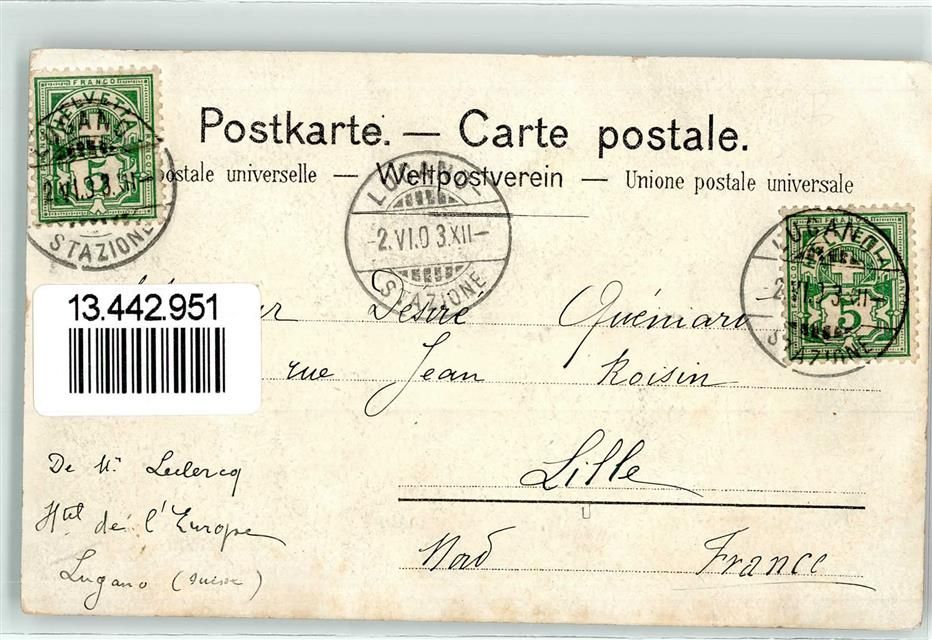 FRANCO
HELVETIA
5
Postkarte. — Carte postale.
postale universelle — Weltpostverein — Unione postale universale
LUGANO
-2.VI.03.XII—
STAZIONE
2.VI.03.XII—
STAZIONE
FRANCO
5
LUGANO
STAZIONE
13.442.951
Desiré Quémard
rue Jean Roisin
Lille
Nord France
De Mr Leclercq
Htel de l'Europe
Lugano (Suisse)